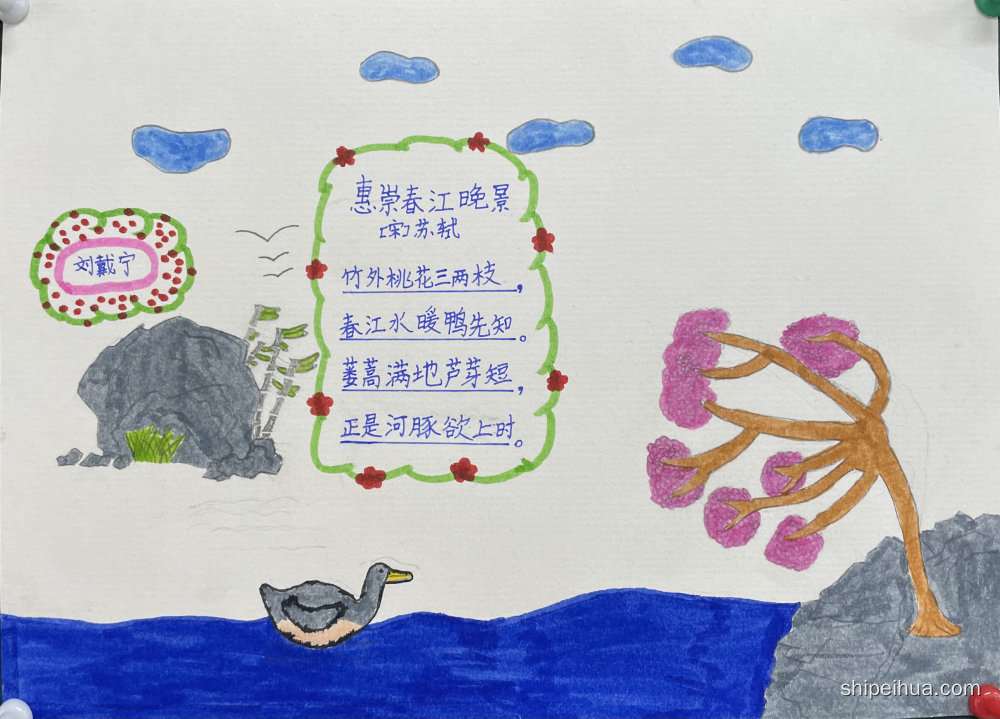 惠崇春江晚景
[宋]苏轼
竹外桃花三两枝，
春江水暖鸭先知。
蒌蒿满地芦芽短，
正是河豚欲上时。
刘戴宁
shipeihua.com